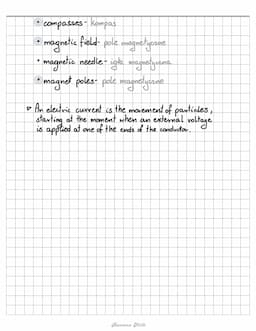 compasses - kompas
magnetic field - pole magnetyczne
magnetic needle - igła magnetyczna
magnet poles - pole magnetyczne
An electric current is the movement of particles,
starting at the moment when an external voltage
is applied at one of the ends of the conductor.